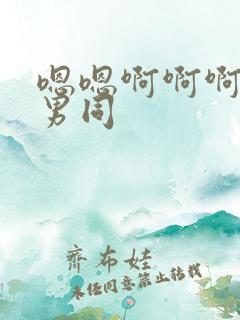 嗯嗯啊啊啊
男同
齐布娃
未经同意禁止转载